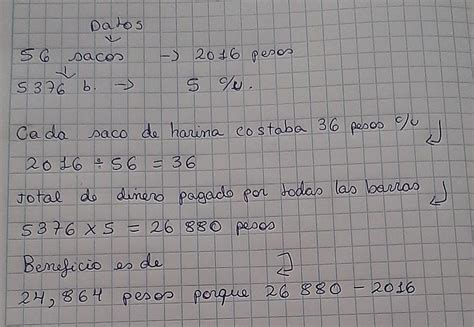 Datos
56 sacos -> 2016 pesos
5376 b. -> 5 c/u.
Cada saco de harina costaba 36 pesos c/u
2016 ÷ 56 = 36
total de dinero pagado por todas las barras
5376 x 5 = 26 880 pesos
Beneficio es de
24,864 pesos porque 26 880 - 2016